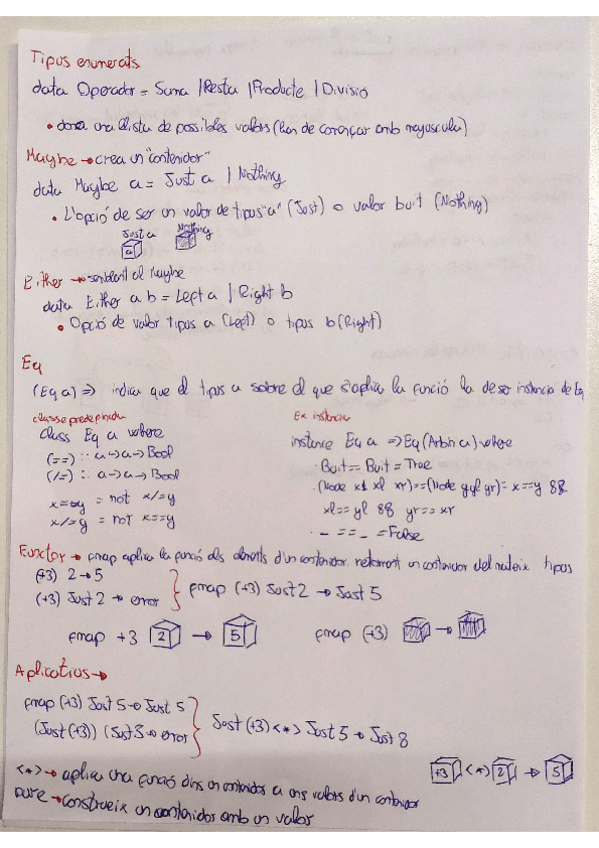 Tipus enumerats
data Operador = Suma | Resta | Producte | Divisió
• dona una llista de possibles valors (han de començar amb majuscula)
Maybe → crea un "contenidor"
data Maybe a = Just a | Nothing
• L'opció de ser un valor de tipus "a" (Just) o valor buit (Nothing)
Just a Nothing
a
Either → semblant al Maybe
data Either a b = Left a | Right b
• Opció de valor tipus a (Left) o tipus b (Right)
Eq
(Eq a) => indica que el tipus a sobre el que s'aplica la funció ha de ser instancia de Eq
classe predefinida
class Eq a where
(==) :: a -> a -> Bool
(/=) :: a -> a -> Bool
x == y = not x /= y
x /= y = not x == y
Ex instancia
instance Eq a => Eq (Arbin a) where
· Buit == Buit = True
· (Node x xl xr) == (Node y yl yr) = x == y &&
xl == yl && yr == xr
· _ == _ = False
Functor → fmap aplica la funció als elements d'un contenidor retornant un contenidor del mateix tipus
(+3) 2 → 5
(+3) Just 2 → error
fmap (+3) Just 2 → Just 5
fmap +3 2 → 5
fmap (+3) →
Aplicatius →
fmap (+3) Just 5 → Just 5
(Just (+3)) (Just 3 → error
Just (+3) <*> Just 5 → Just 8
+3 <*> 2 → 5
<*> → aplica una funció dins un contenidor a uns valors d'un contenidor
pure → construeix un contenidor amb un valor